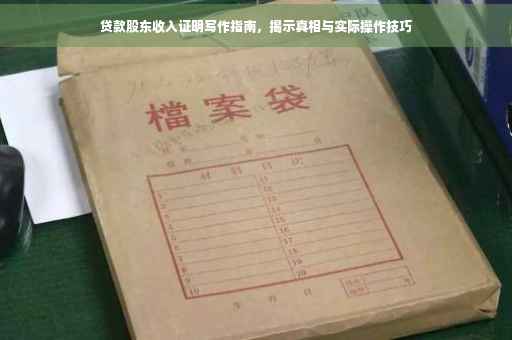 贷款股东收入证明写作指南，揭示真相与实际操作技巧
檔案袋
材料目次
1 11
2 12
3 13
4 14
5 15
6 16
7 17
8 18
9 19
10 20
年 月 日